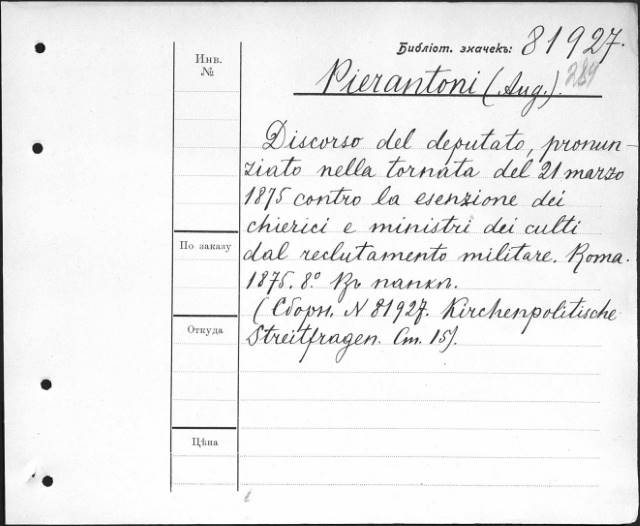 Библіот. значекъ: 81927.
Инв.
№
Pierantoni (Aug.). 289
Discorso del deputato, pronun-
ziato nella tornata del 21 marzo
1875 contro la esenzione dei
chierici e ministri dei culti
По заказу
dal reclutamento militare. Roma.
1875. 8º. Въ папкѣ.
(Сборн. N 81927. Kirchenpolitische
Откуда
Streitfragen. Ст. 15).
Цѣна